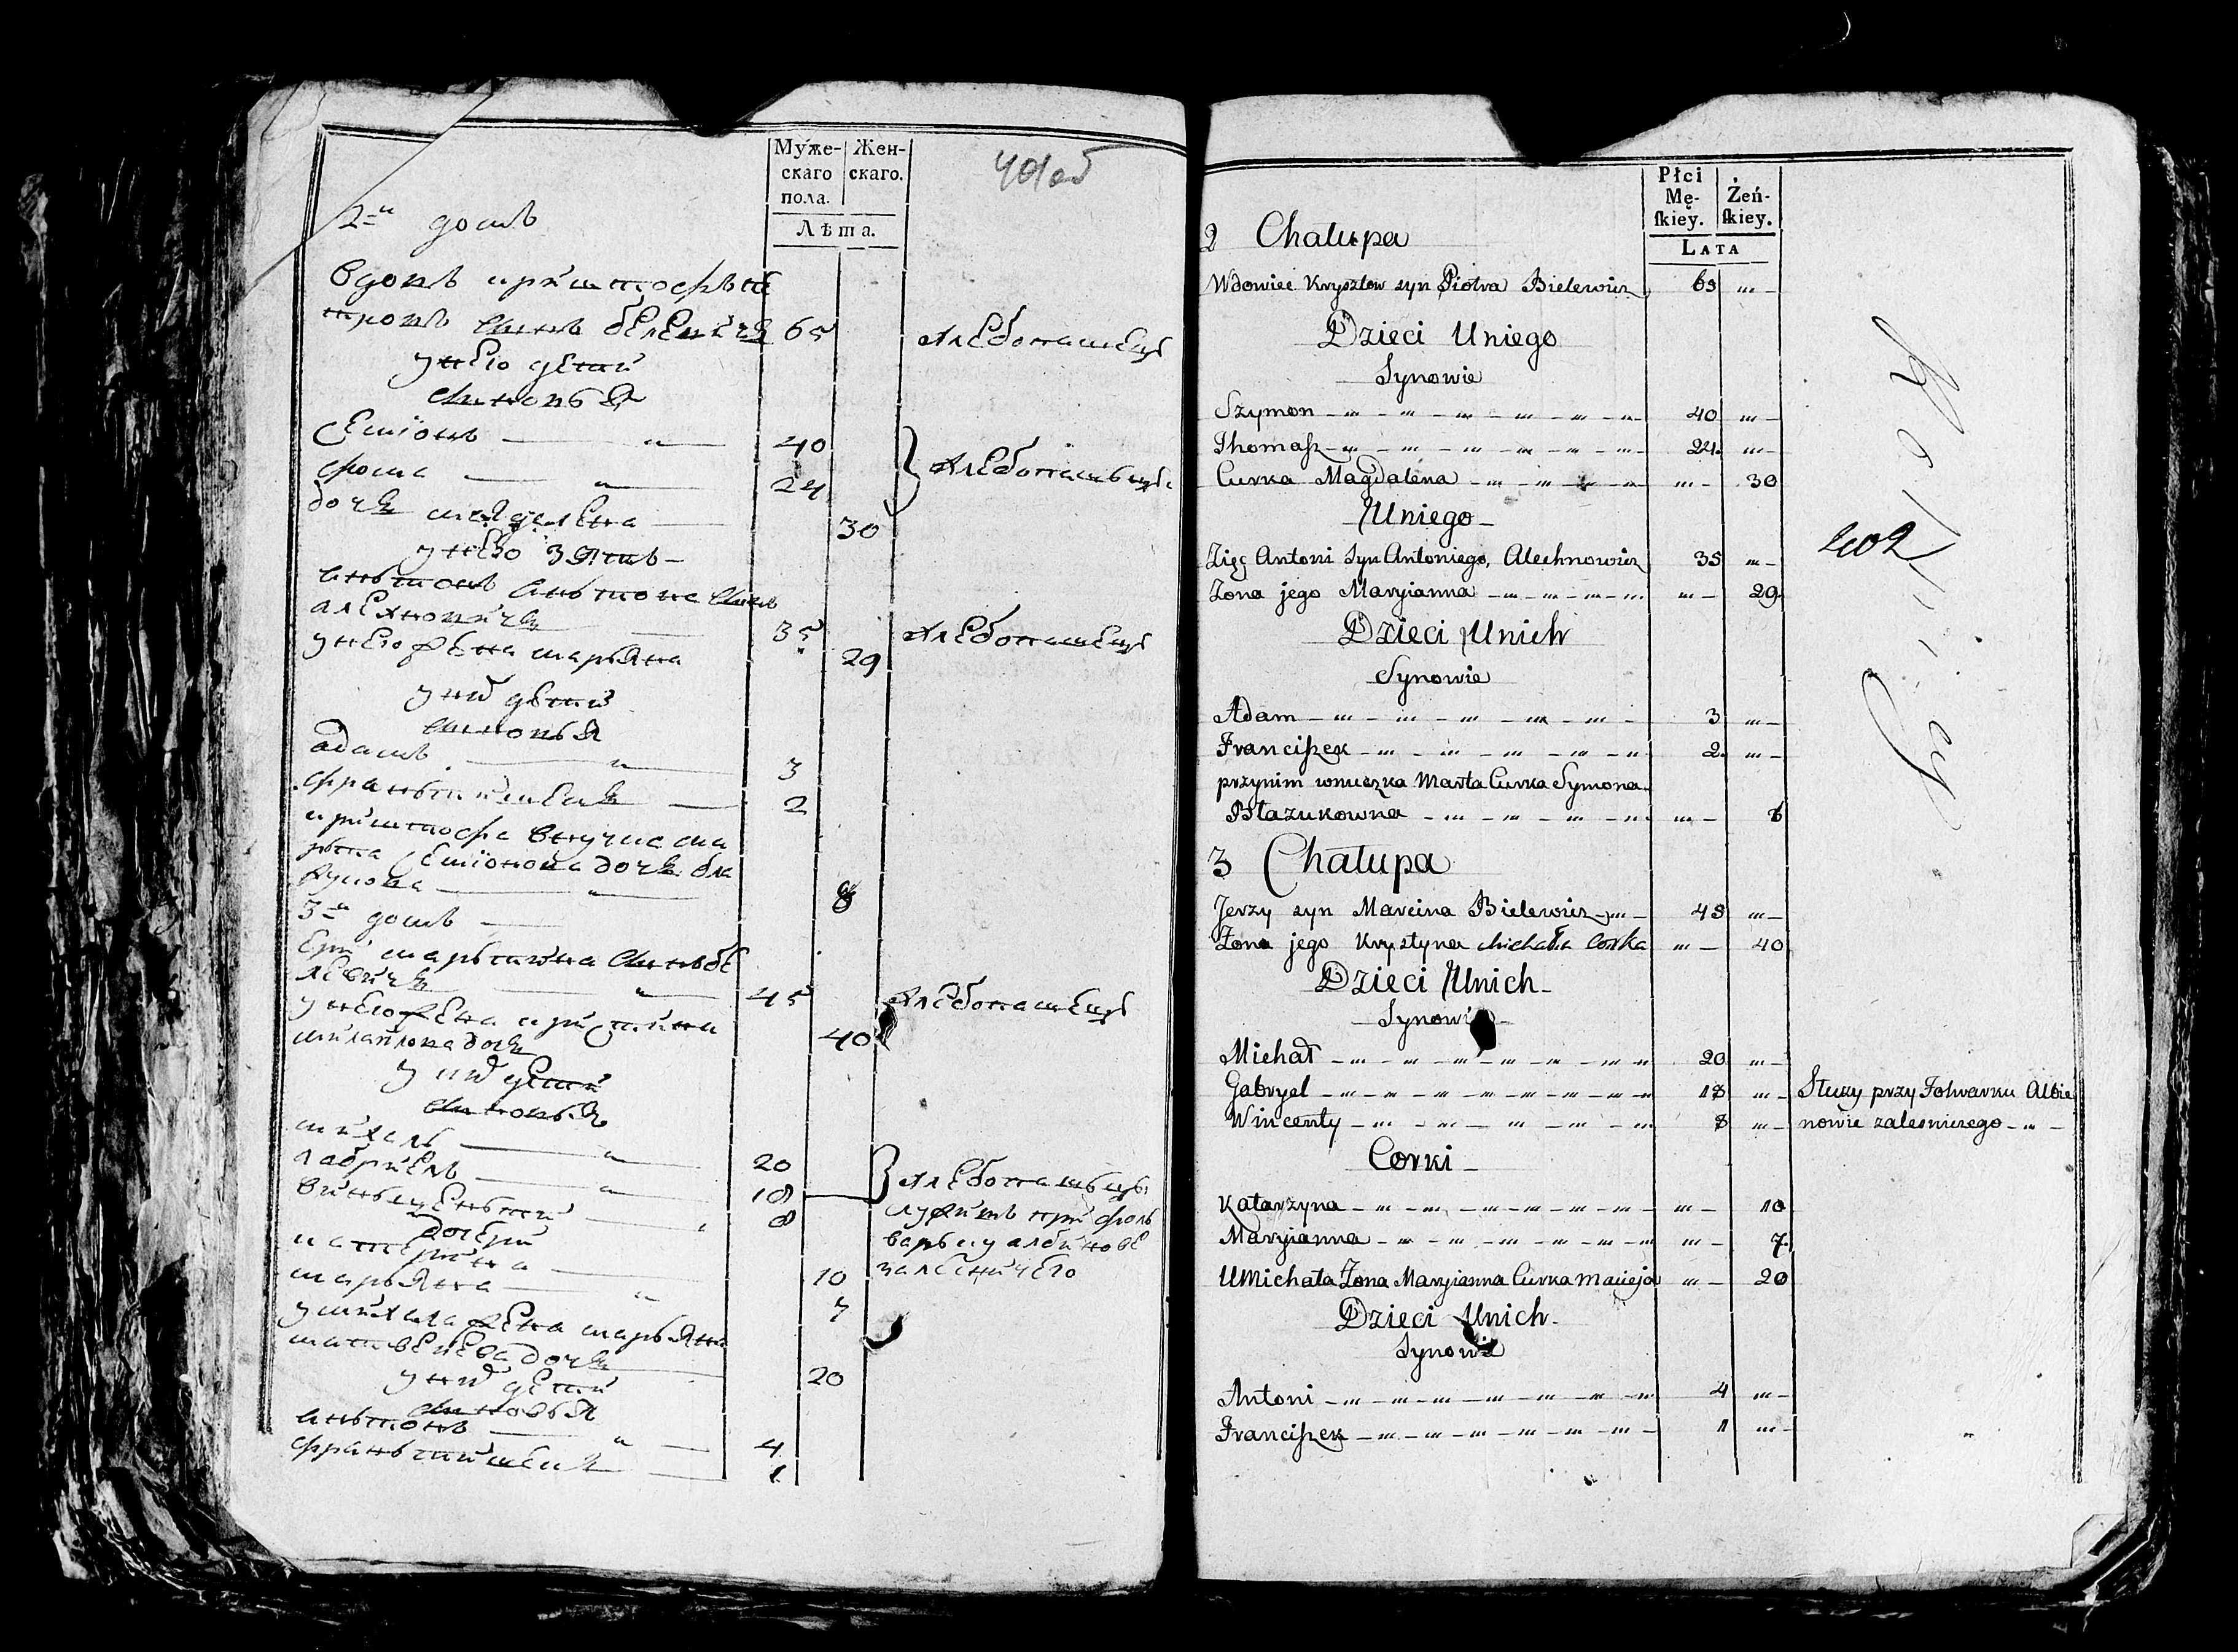 Муже-
скаго
пола.
Жен-
скаго.
Лѣта.
401об
2й домъ
вдовъ криштофъ пе
тровъ сынъ белевичъ 65 хлебопашецъ
у него дети
сыновья
Семіонъ 40
фома 24 хлебопашьцы
дочь магдалена 30
у него зять
аньтонъ аньтона сынъ
алехновичъ 35 хлебопашецъ
у него жена марьяна 29
у них дети
сыновья
адамъ 3
франьтишекъ 2
криштофа внучка ма
рьта Семіонова дочь бла
жукова 8
3й домъ
Ерй марьтина сынъ бе
левичъ 45 хлебопашецъ
у него жена кристина
михайлова дочь 40
у них дети
сыновья
михаль 20
габриель 18 хлебопашьцы
виньценьтий 8 служитъ при фоль
дочери варьку албинове
катерина 10 залесничего
марьяна 7
у михала жена марьяна
матвеева дочь 20
у них дети
сыновья
аньтонъ 4
франьтишекъ 1
Płci
Mę-
ſkiey.
Żeń-
ſkiey.
LATA
2 Chalupa
Wdowiec Krysztow syn Piotra Bielewicz 65
Dzieci Uniego
Synowie
Szymon 40
Thomaſz 24
Curka Magdalena 30
Uniego
Zięć Antoni Syn Antoniego, Alechnowicz 35
Zona jego Maryianna 29
Dzieci Unich
Synowie
Adam 3
Franciſzek 2
przynim wnuczka Marta Curka Symona
Błazukowna 8
3 Chalupa
Jerzy syn Marcina Bielewicz 45
Zona jego Krystyna Michała Corka 40
Dzieci Unich
Synowie
Michał 20
Gabryel 18 Słuzy przy Folwarku Albie
Wincenty 8 nowie zalesniczego
Corki
Katarzyna 10
Maryianna 7
U Michała Zona Maryianna Curka Macieja 20
Dzieci Unich
Synowie
Antoni 4
Franciſzek 1
402